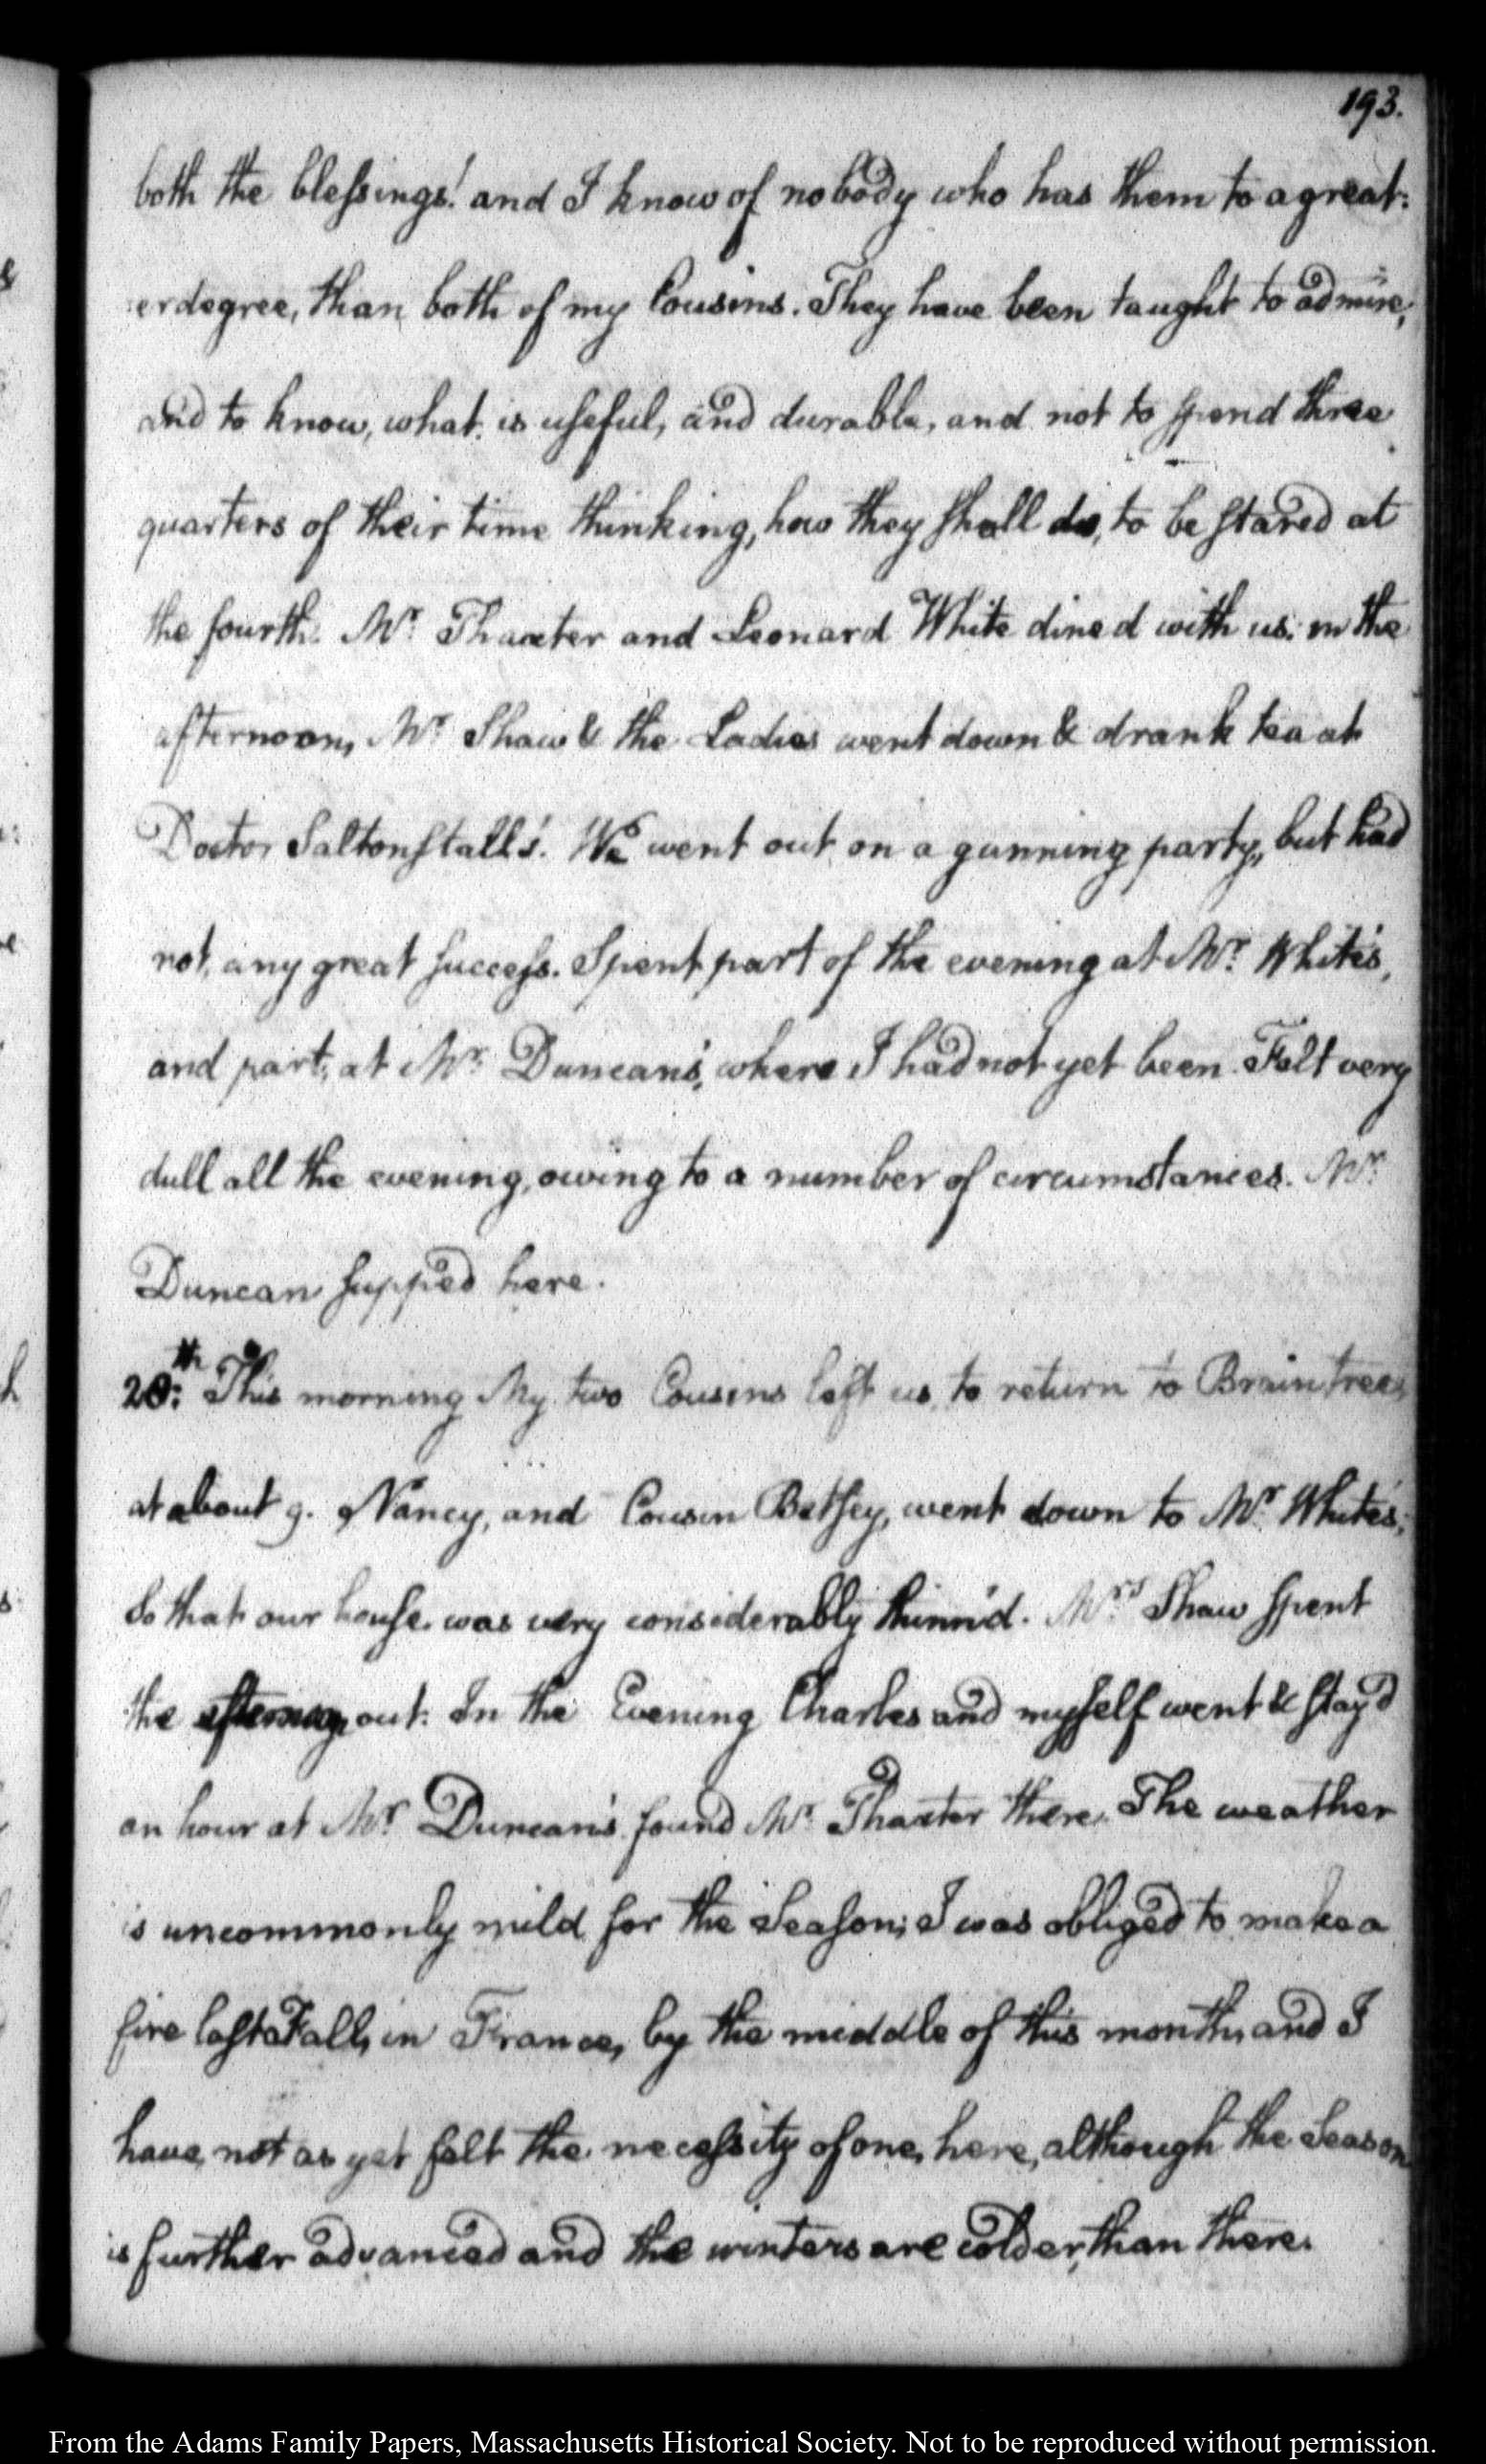 193.
both the blessings! and I know of nobody who has them to a great:
:er degree, than both of my Cousins. They have been taught to admire,
and to know, what is useful, and durable, and not to spend three
quarters of their time thinking, how they shall do, to be stared at
the fourth. Mr. Thaxter and Leonard White dined with us: in the
afternoon, Mr. Shaw & the Ladies went down & drank tea at
Doctor Saltonstall's. We went out on a gunning party, but had
not, any great success. Spent part of the evening at Mr. White's,
and part, at Mr. Duncan's, where I had not yet been. Felt very
dull all the evening, owing to a number of circumstances. Mr.
Duncan supped here.
20th: This morning My two Cousins left us, to return to Braintree,
at about 9. Nancy, and Cousin Betsey, went down to Mr. White's;
So that our house was very considerably thinn'd. Mrs. Shaw spent
the afternoon out. In the Evening Charles and myself went & stay'd
an hour at Mr. Duncan's found Mr. Thaxter there. The weather
is uncommonly mild for the Season; I was obliged to make a
fire last Fall, in France, by the middle of this month, and I
have, not as yet felt the necessity of one, here, although the Season
is further advanced and the winters are colder, than there.
From the Adams Family Papers, Massachusetts Historical Society. Not to be reproduced without permission.